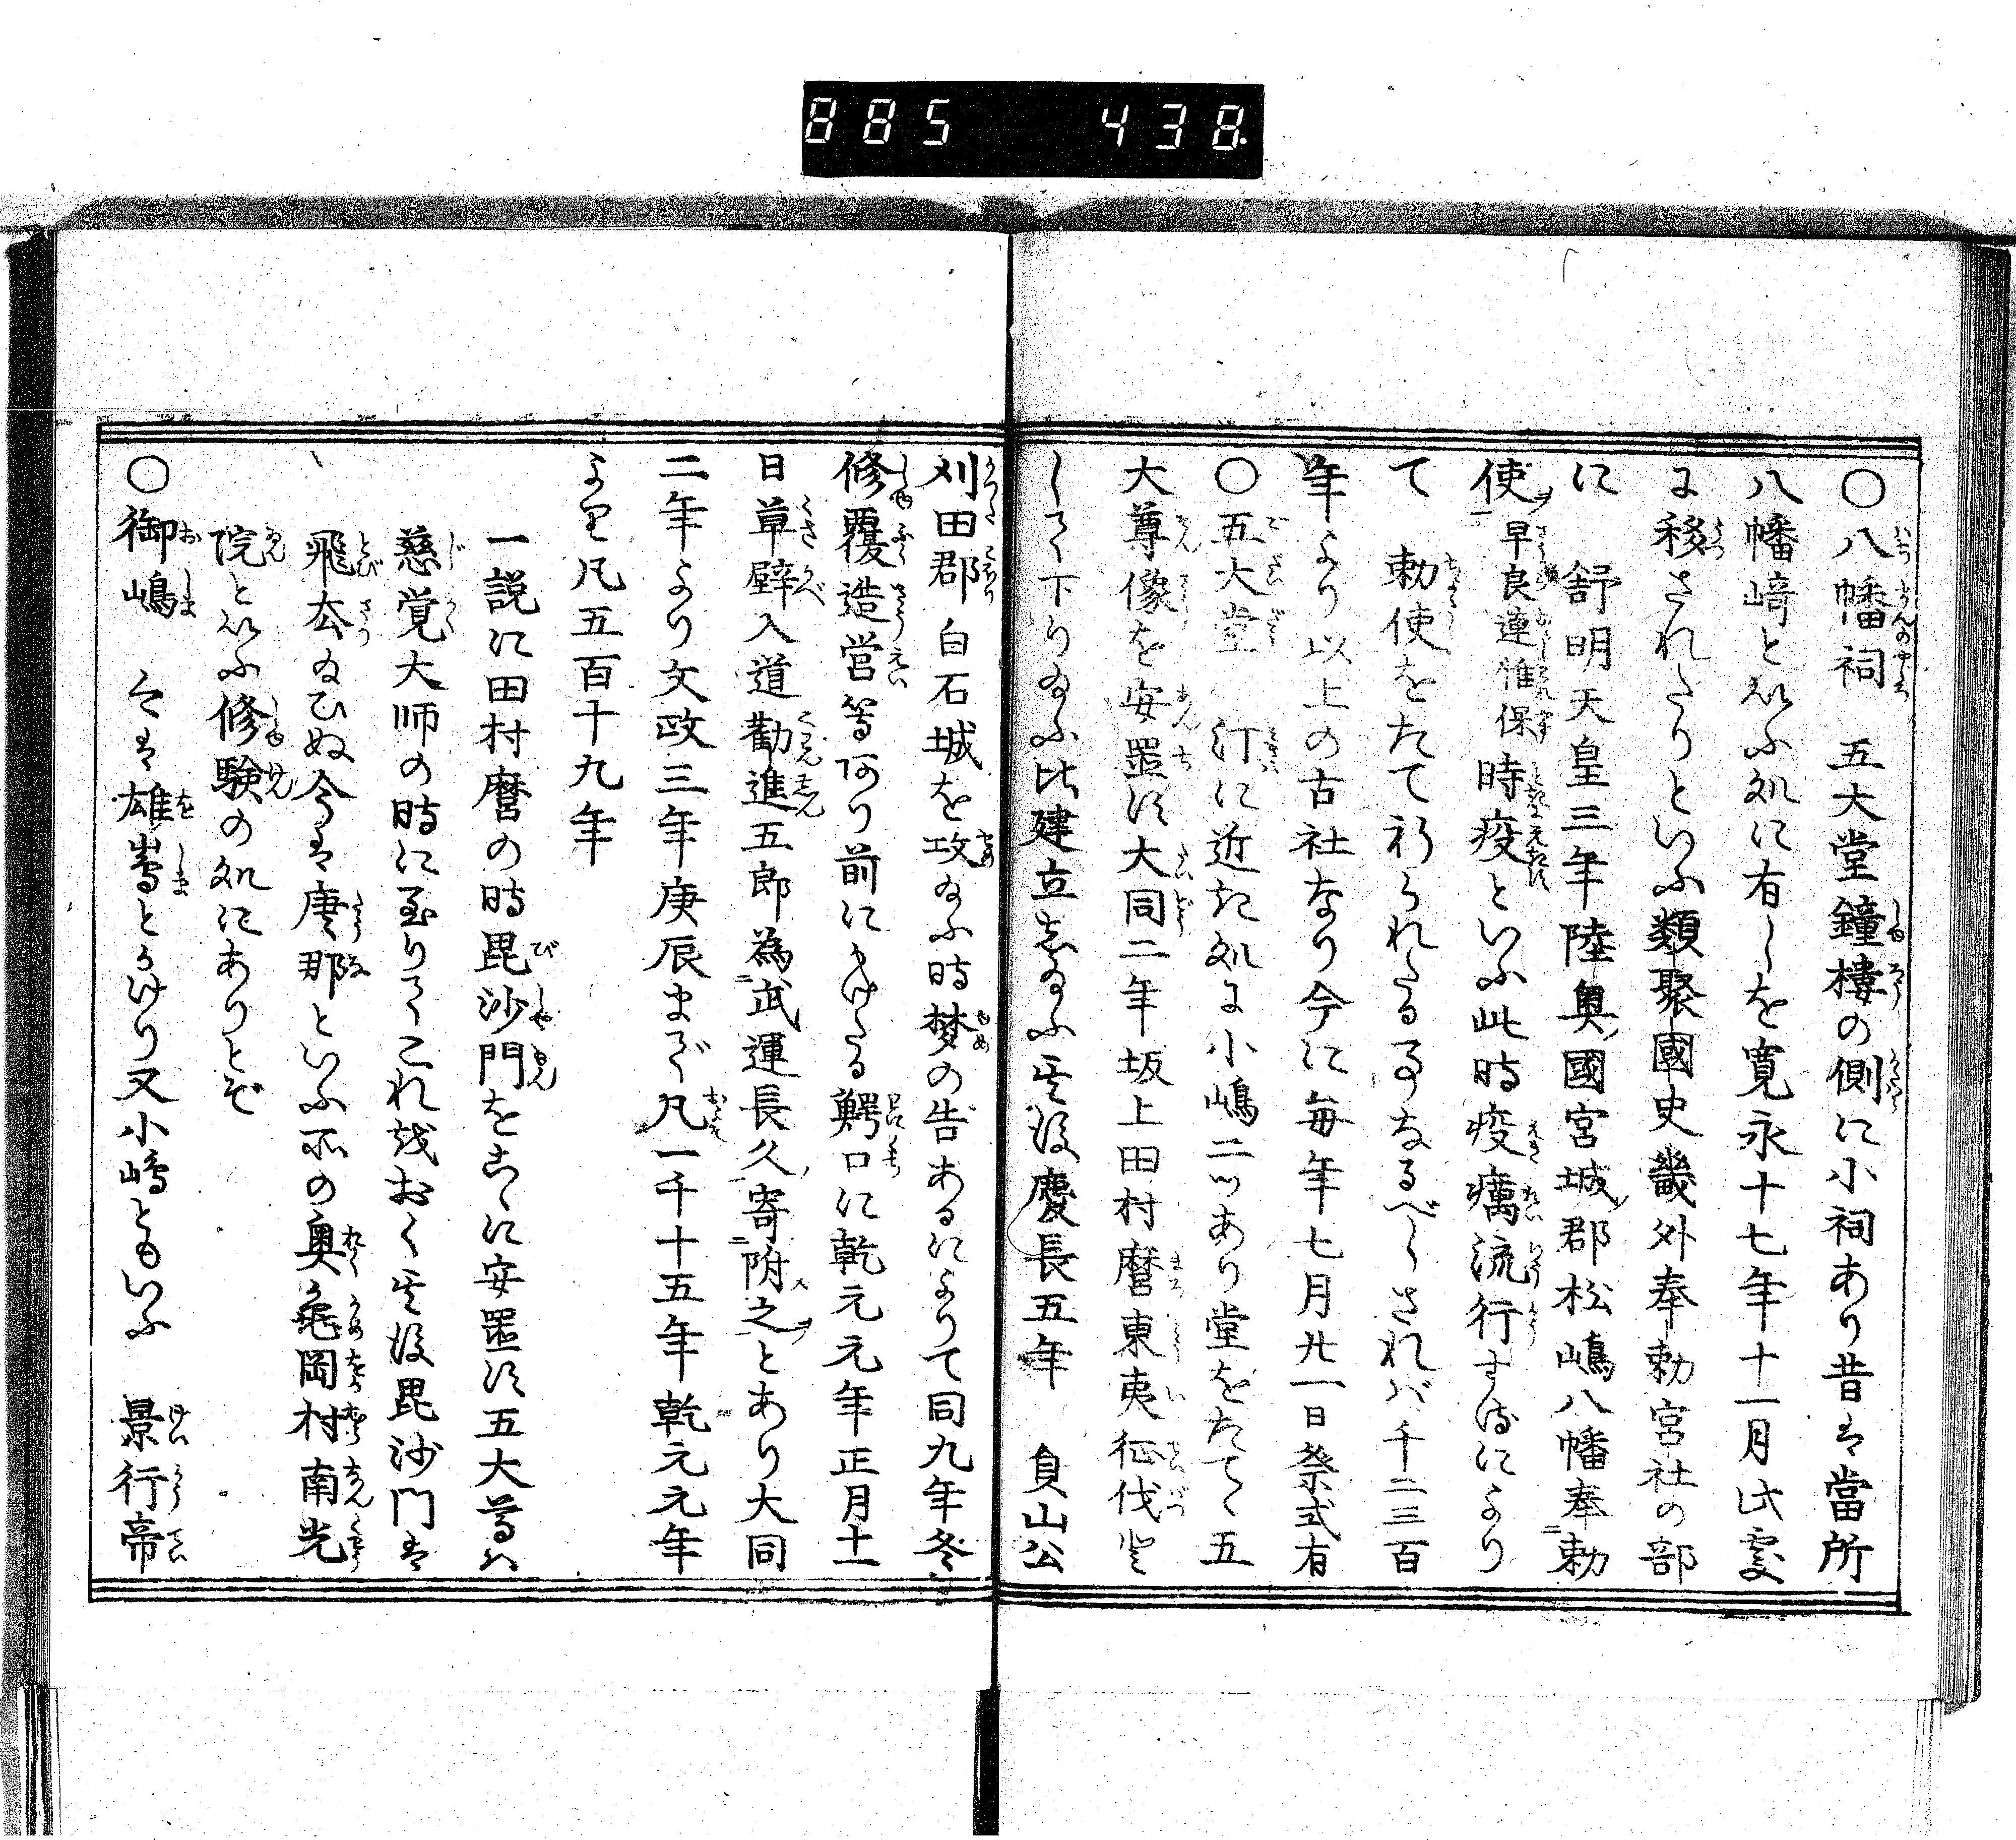 885 438
〇八幡祠 五大堂鐘樓の側に小祠あり昔は當所
八幡﨑といふ処に有しを寛永十七年十一月此處
に移されたりといふ類聚國史畿外奉勅宮社の部
に 舒明天皇三年陸奥國宮城郡松嶋八幡奉勅
使早良連惟保時疫といふ此時疫癘流行するにより
て 勅使をたて祈られたる事なるべしされバ千二三百
年より以上の古社なり今に毎年七月廿一日祭式有
〇五大堂 汀に近き処に小嶋二ツあり堂をたてゝ五
大尊像を安置す大同二年坂上田村麿東夷征伐と
して下り給ふ比建立し給ふ其後慶長五年 貞山公
刈田郡白石城を攻給ふ時梦の告あるによりて同九年冬
修覆造営等阿り前にかけたる鰐口に乾元元年正月十一
日草壁入道勸進五郎為武運長久寄附之とあり大同
二年より文政三年庚辰まで凡一千十五年乾元元年
より凡五百十九年
一説に田村麿の時毘沙門をこゝに安置す五大尊ハ
慈覚大师の時に至りてこれ越おく其後毘沙门は
飛去給ひぬ今は唐那といふ所の奥亀岡村南光
院といふ修験の処にありとぞ
〇御嶋 今は雄嶌とかけり又小嶋ともいふ 景行帝